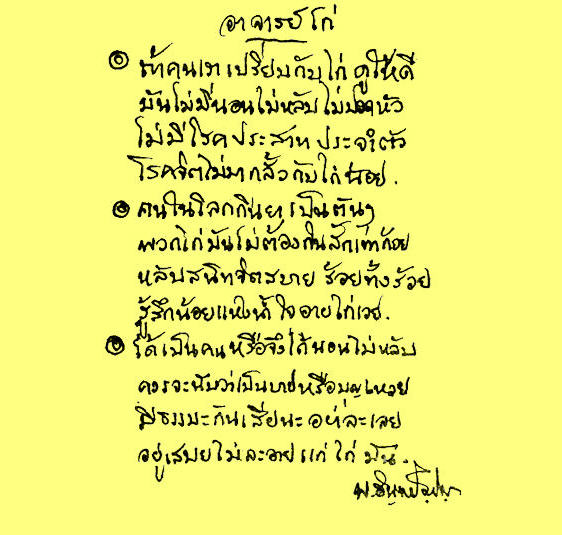 อาจารย์ไก่
๏ ถ้าคนเราเปรียบกับไก่ ดูให้ดี
มันไม่มีนอนไม่หลับ ไม่ปวดหัว
ไม่มีโรคประสาท ประจำตัว
โรคจิตไม่มากลั้วกับไก่น้อย.
๏ คนในโลกกินยา เป็นตันๆ
พวกไก่มันไม่ต้องกินสักเท่าก้อย
หลับสนิทจิตสบาย ร้อยทั้งร้อย
รู้สึกน้อยแห่งน้ำใจอายไก่เวย.
๏ ได้เป็นคนหรือจึงได้นอนไม่หลับ
ควรจะนับว่าเป็นบาปหรือบุญเหวย
มีธรรมะกันเสียนะ อย่าละเลย
อยู่เสบยไม่ละอายแก่ ไก่ มัน.